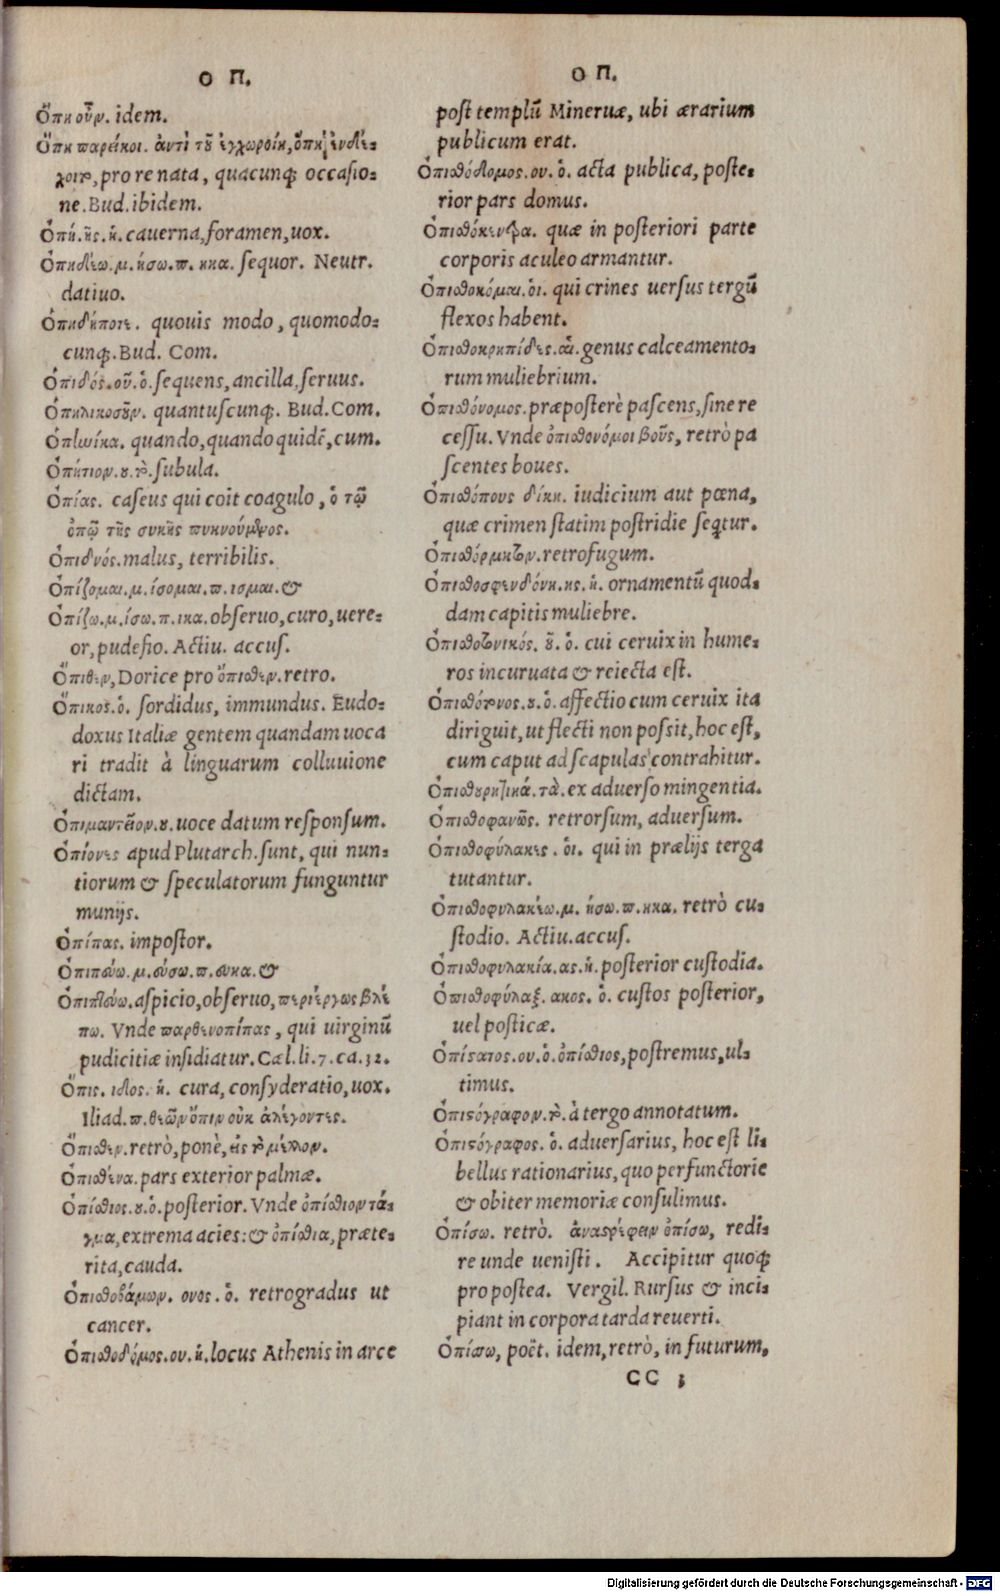 Ο Π.
Ὅπη οὖν. idem.
Ὅπη παρείκοι. ἀντὶ τοῦ ἐγχωροίη, ὅπη ἐνδέ-
χοιτο, pro re nata, quacunq; occasio-
ne. Bud. ibidem.
Ὀπή. ῆς. ἡ. cauerna, foramen, uox.
Ὀπηδέω. μ. ήσω. π. ηκα. sequor. Neutr.
datiuo.
Ὀπηδήποτε. quouis modo, quomodo-
cunq;. Bud. Com.
Ὀπιδός. οῦ. ὁ. sequens, ancilla, seruus.
Ὀπηλικοσοῦν. quantuscunq;. Bud. Com.
Ὀπηνίκα. quando, quando quidē, cum.
Ὀπήτιον. ου. τὸ. subula.
Ὀπίας. caseus qui coit coagulo, ὁ τῷ
ὀπῷ τῆς συκῆς πυκνούμενος.
Ὀπιδνός. malus, terribilis.
Ὀπίζομαι. μ. ίσομαι. π. ισμαι. &
Ὀπίζω. μ. ίσω. π. ικα. obseruo, curo, uere-
or, pudefio. Actiu. accus.
Ὄπιθεν, Dorice pro ὄπισθεν. retro.
Ὄπικος. ὁ. sordidus, immundus. Eudo-
doxus Italiæ gentem quandam uoca
ri tradit à linguarum colluuione
dictam.
Ὀπιμαντεῖον. ου. uoce datum responsum.
Ὀπίονες apud Plutarch. sunt, qui nun-
tiorum & speculatorum funguntur
munijs.
Ὀπίπας. impostor.
Ὀπιπεύω. μ. εύσω. π. ευκα. &
Ὀπιπτεύω. aspicio, obseruo, περιέργως βλέ
πω. Vnde παρθενοπίπας, qui uirginū
pudicitiæ insidiatur. Cæl. li. 7. ca. 32.
Ὄπις. ιδος. ἡ. cura, consyderatio, uox.
Iliad. π. θεῶν ὄπιν οὐκ ἀλέγοντες.
Ὄπισθεν. retrò, ponè, εἰς τὸ μέλλον.
Ὀπισθένα. pars exterior palmæ.
Ὀπίσθιος. ου. ὁ. posterior. Vnde ὀπίσθιον τά-
γμα, extrema acies: & ὀπίσθια, præte-
rita, cauda.
Ὀπισθοβάμων. ονος. ὁ. retrogradus ut
cancer.
Ὀπισθοδόμος. ου. ἡ. locus Athenis in arce
Ο Π.
post templū Mineruæ, ubi ærarium
publicum erat.
Ὀπισθόδομος. ου. ὁ. acta publica, poste-
rior pars domus.
Ὀπισθόκεντρα. quæ in posteriori parte
corporis aculeo armantur.
Ὀπισθοκόμαι. οἱ. qui crines uersus tergū
flexos habent.
Ὀπισθοκρηπίδες. αἱ. genus calceamento-
rum muliebrium.
Ὀπισθόνομος. præposterè pascens, sine re
cessu. Vnde ὀπισθονόμοι βοῦς, retrò pa
scentes boues.
Ὀπισθόπους δίκη. iudicium aut pœna,
quæ crimen statim postridie seqtur.
Ὀπισθόρμητον. retrofugum.
Ὀπισθοσφενδόνη. ης. ἡ. ornamentū quod-
dam capitis muliebre.
Ὀπισθοτονικός. οῦ. ὁ. cui ceruix in hume-
ros incuruata & reiecta est.
Ὀπισθότονος. ου. ὁ. affectio cum ceruix ita
diriguit, ut flecti non possit, hoc est,
cum caput ad scapulas contrahitur.
Ὀπισθουρητικά. τὰ. ex aduerso mingentia.
Ὀπισθοφανῶς. retrorsum, aduersum.
Ὀπισθοφύλακες. οἱ. qui in prælijs terga
tutantur.
Ὀπισθοφυλακέω. μ. ήσω. π. ηκα. retrò cu-
stodio. Actiu. accus.
Ὀπισθοφυλακία. ας. ἡ. posterior custodia.
Ὀπισθοφύλαξ. ακος. ὁ. custos posterior,
uel posticæ.
Ὀπίστατος. ου. ὁ. ὀπίσθιος, postremus, ul-
timus.
Ὀπιστόγραφον. τὸ. à tergo annotatum.
Ὀπιστόγραφος. ὁ. aduersarius, hoc est li-
bellus rationarius, quo perfunctorie
& obiter memoriæ consulimus.
Ὀπίσω. retrò. ἀναστρέφειν ὀπίσω, redi-
re unde uenisti. Accipitur quoq;
pro postea. Vergil. Rursus & inci-
piant in corpora tarda reuerti.
Ὀπίσσω, poët. idem, retrò, in futurum,
CC 3
Digitalisierung gefördert durch die Deutsche Forschungsgemeinschaft - DFG